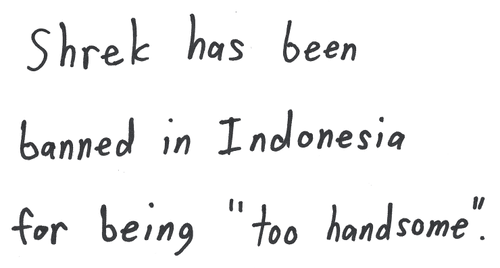 Shrek has been
banned in Indonesia
for being "too handsome".